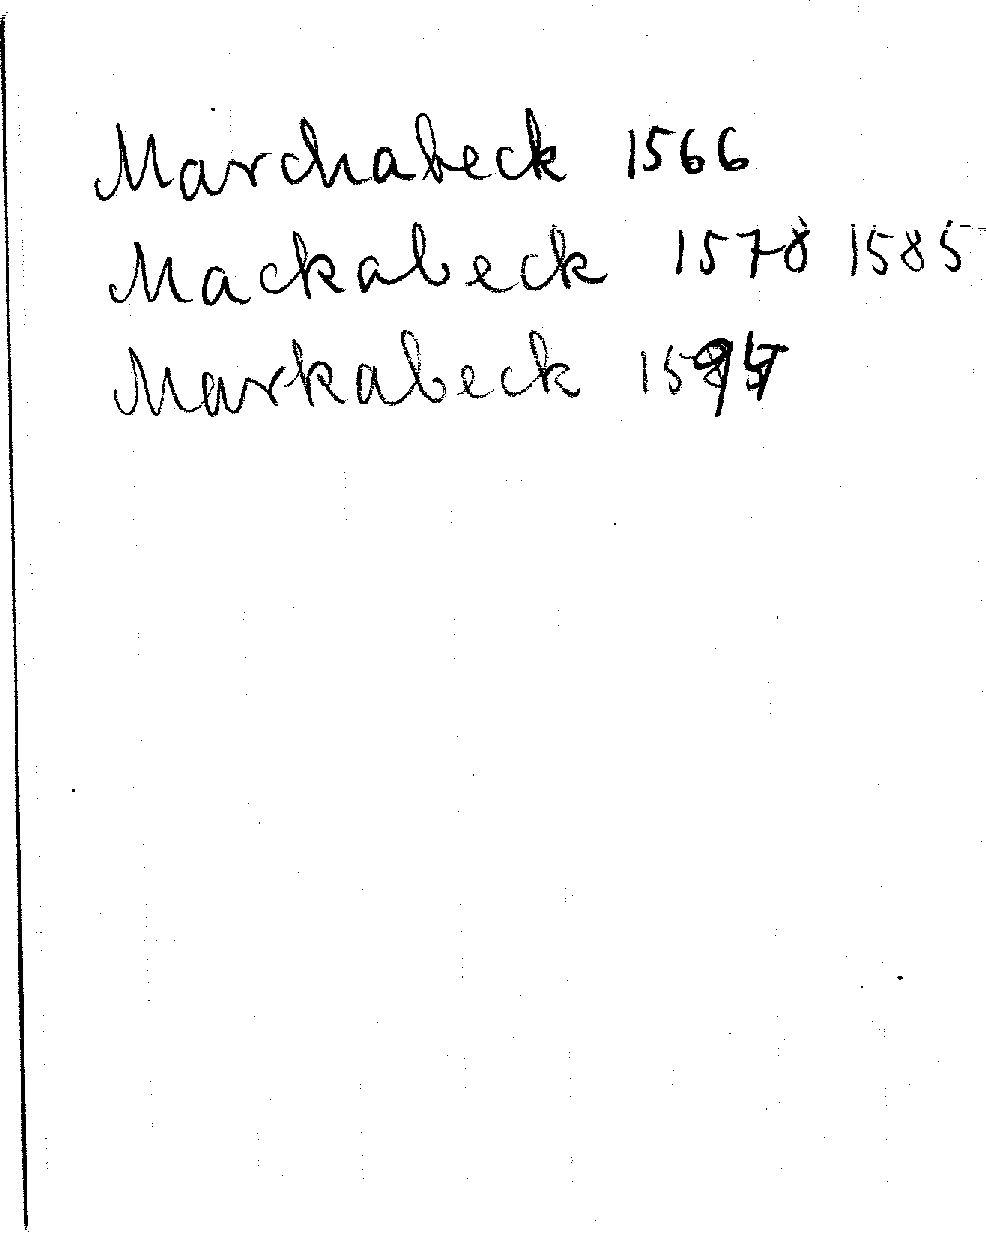 Marchabeck 1566
Mackabeck 1578 1585
Markabeck